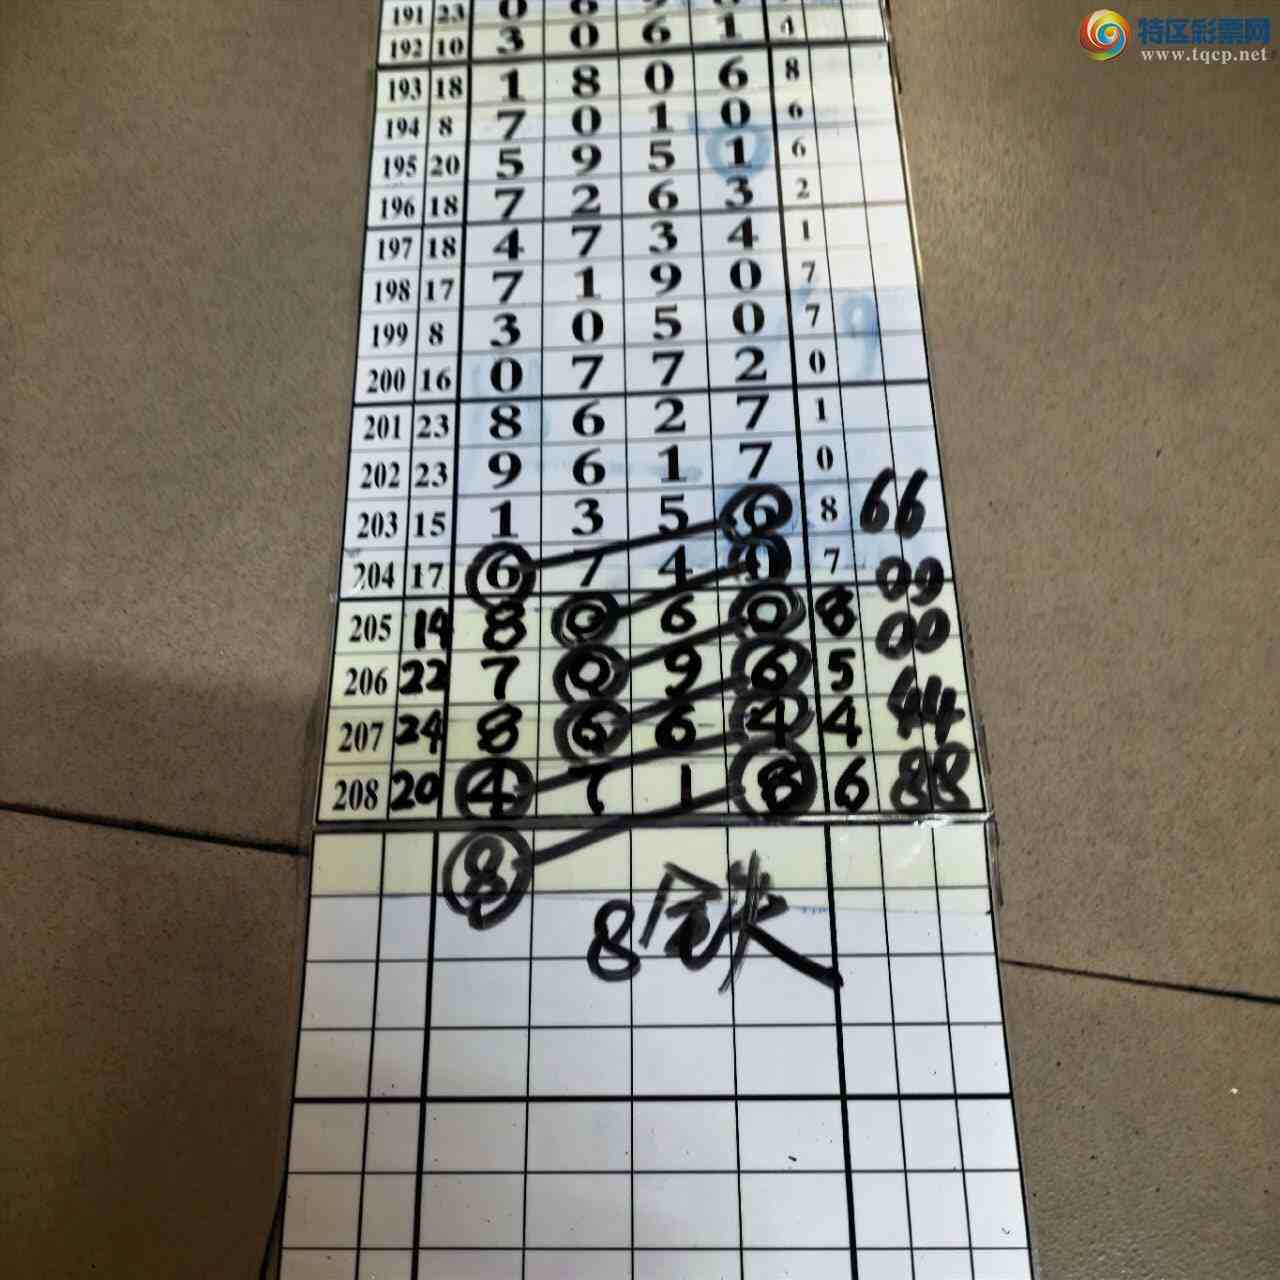 特区彩票网
www.tqcp.net
191 23 0 6 9
192 10 3 0 6 1 4
193 18 1 8 0 6 8
194 8 7 0 1 0 6
195 20 5 9 5 1 6
196 18 7 2 6 3 2
197 18 4 7 3 4 1
198 17 7 1 9 0 7
199 8 3 0 5 0 7 9
200 16 0 7 7 2 0
201 23 8 6 2 7 1
202 23 9 6 1 7 0
203 15 1 3 5 6 8 66
204 17 6 7 4 0 7 00
205 14 8 0 6 0 8 00
206 22 7 0 9 6 5
207 24 8 6 6 4 4 44
208 20 4 7 1 8 6 88
8
8